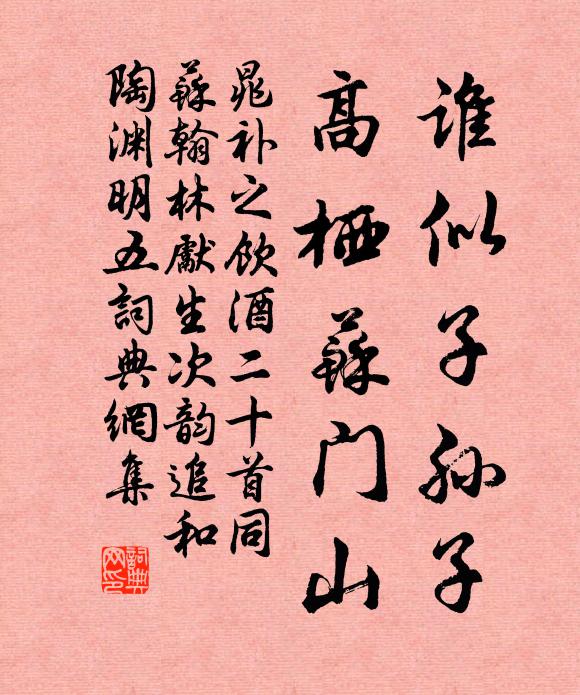 谁似子孙子
高栖蘇门山
晁补之飲酒二十首同
蘇翰林獻生次韵追和
陶渊明五詞典網集
詞典
网印